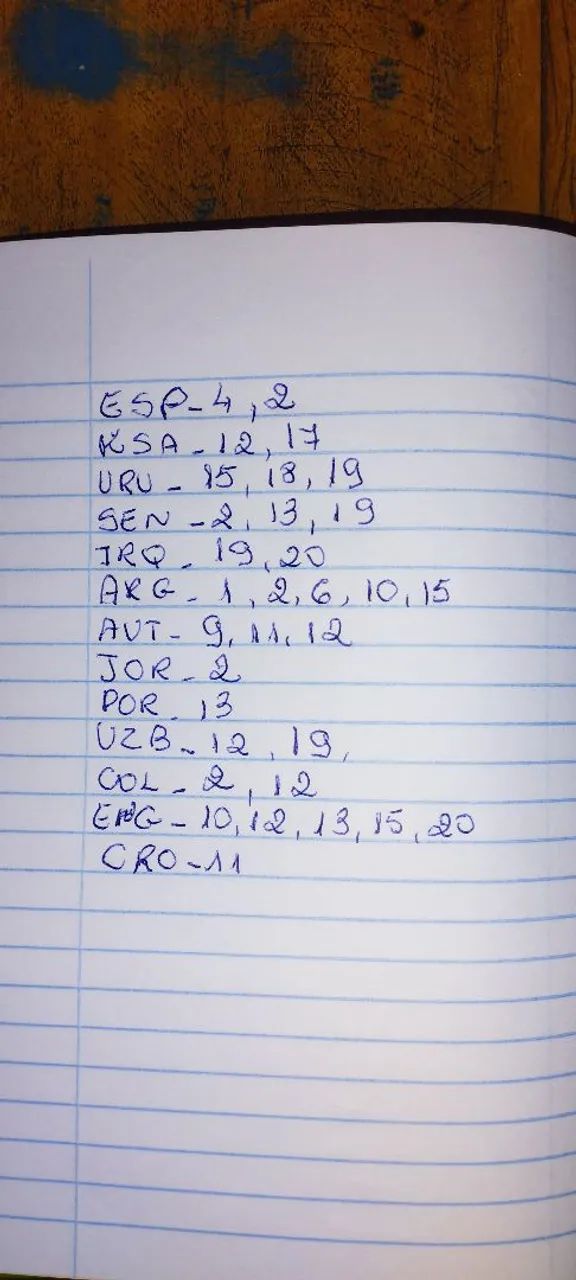 ESP-4, 2
KSA-12, 17
URU-15, 18, 19
SEN-2, 13, 19
IRQ-19, 20
ARG-1, 2, 6, 10, 15
AUT-9, 11, 12
JOR-2
POR-13
UZB-12, 19,
COL-2, 12
ENG-10, 12, 13, 15, 20
CRO-11